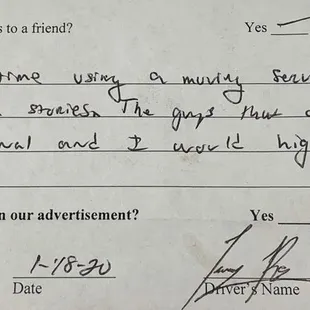 s to a friend? Yes
time using a moving serv
stories. The guys that
nal and I would hig
n our advertisement? Yes
1-18-20
Date Driver's Name